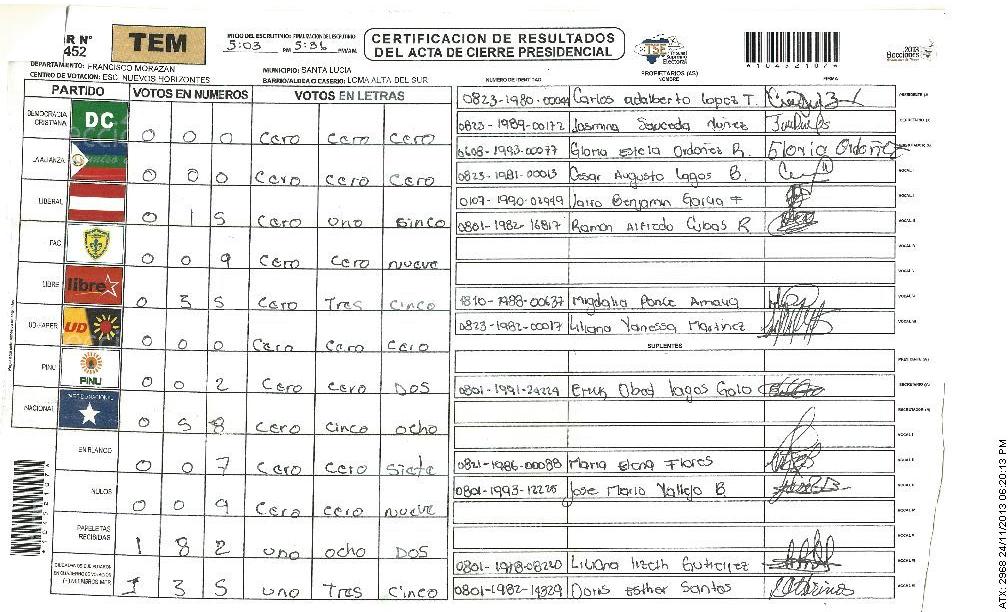 R N°
452
TEM
INICIO DEL ESCRUTINIO: FINALIZACION DEL ESCRUTINIO
5:03 PM 5:36 PM/AM.
CERTIFICACION DE RESULTADOS
DEL ACTA DE CIERRE PRESIDENCIAL
TSE Tribunal Supremo Electoral
2013
Elecciones
DEPARTAMENTO: FRANCISCO MORAZAN
MUNICIPIO: SANTA LUCIA
CENTRO DE VOTACION: ESC. NUEVOS HORIZONTES
BARRIO/ALDEA O CASERIO: LOMA ALTA DEL SUR
NUMERO DE IDENTIDAD
PROPIETARIOS (AS)
NOMBRE
FIRMA
PARTIDO VOTOS EN NUMEROS VOTOS EN LETRAS
DEMOCRACIA CRISTIANA DC 0 0 0 Cero Cero Cero
LA ALIANZA 0 0 0 Cero Cero Cero
LIBERAL 0 1 5 Cero uno Sinco
PAC 0 0 9 Cero Cero nueve
LIBRE libre 0 3 5 Cero Tres Cinco
UD-FAPER UD 0 0 0 Cero Cero Cero
PINU PINU 0 0 2 Cero Cero DOS
NACIONAL 0 5 8 Cero Cinco ocho
EN BLANCO 0 0 7 Cero Cero Siete
NULOS 0 0 9 Cero cero nueve
PAPELETAS RECIBIDAS 1 8 2 uno ocho DOS
1 3 5 uno Tres Cinco
Carlos adalberto Lopez T. PRESIDENTE (A)
0823-1989-00172 Jasmina Sauceda Nuñez SECRETARIO (A)
0608-1993-00077 Gloria Estela Ordoñez R. Gloria Ordoñez
0823-1981-00013 Cesar Augusto Lagos B. VOCAL I
0107-1990-02949 Jairo Benjamin Garcia F
0801-1982-16817 Ramon Alfredo Cubas R
1810-1988-00637 Migdalia Ponce Amaya
0823-1982-00017 Liliana Vanessa Martinez
SUPLENTES
PRESIDENTE (A)
0801-1991-24224 Lagos SECRETARIO (A)
ESCRUTADOR (A)
VOCAL I
0821-1986-00088 Maria Elena Flores
0801-1993-12225 Jose Mario Vallejo B
Liliana Lizeth Gutierrez
0801-1982-14329 Doris Esther Santos
ATX 2968 24/11/2013 06:20:13 PM